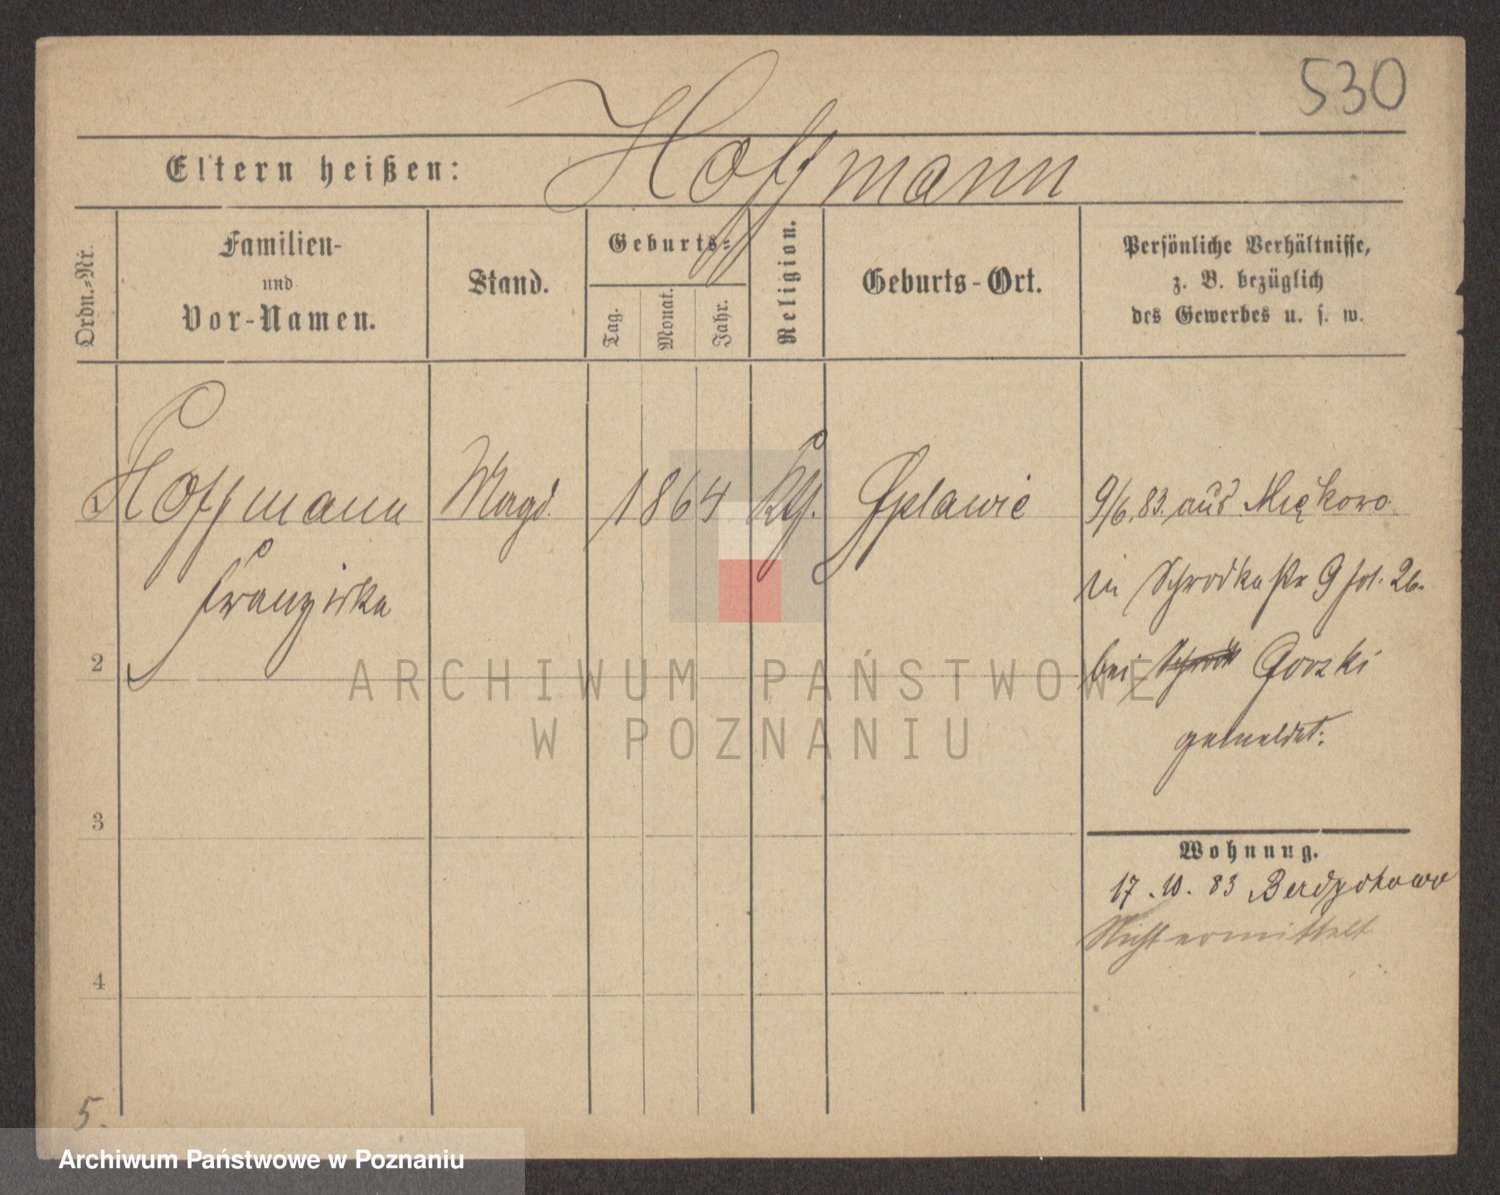 530
Hoffmann
Eltern heißen:
Ordn.-Nr.
Familien-
und
Vor-Namen.
Stand.
Geburts-
Tag.
Monat.
Jahr.
Religion.
Geburts-Ort.
Persönliche Verhältnisse,
z. B. bezüglich
des Gewerbes u. s. w.
Hoffmann
Franziska
Magd.
1864
9/6.83. aus Miękowo
in Schrodka Str 9 fol. 26.
bei Gorski
gemeldet.
2
3
4
5.
Wohnung.
17.10.83 Berdychowo
Nicht ermittelt
ARCHIWUM PAŃSTWOWE
W POZNANIU
Archiwum Państwowe w Poznaniu